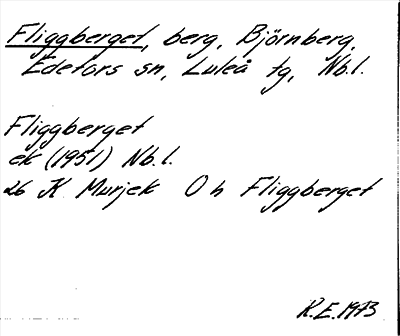 Fliggberget, berg, Björnberg,
Edefors sn, Luleå tg, Nb.l.
Fliggberget
ek (1951) Nb.l.
26 K Murjek O h Fliggberget
K.E. 1973